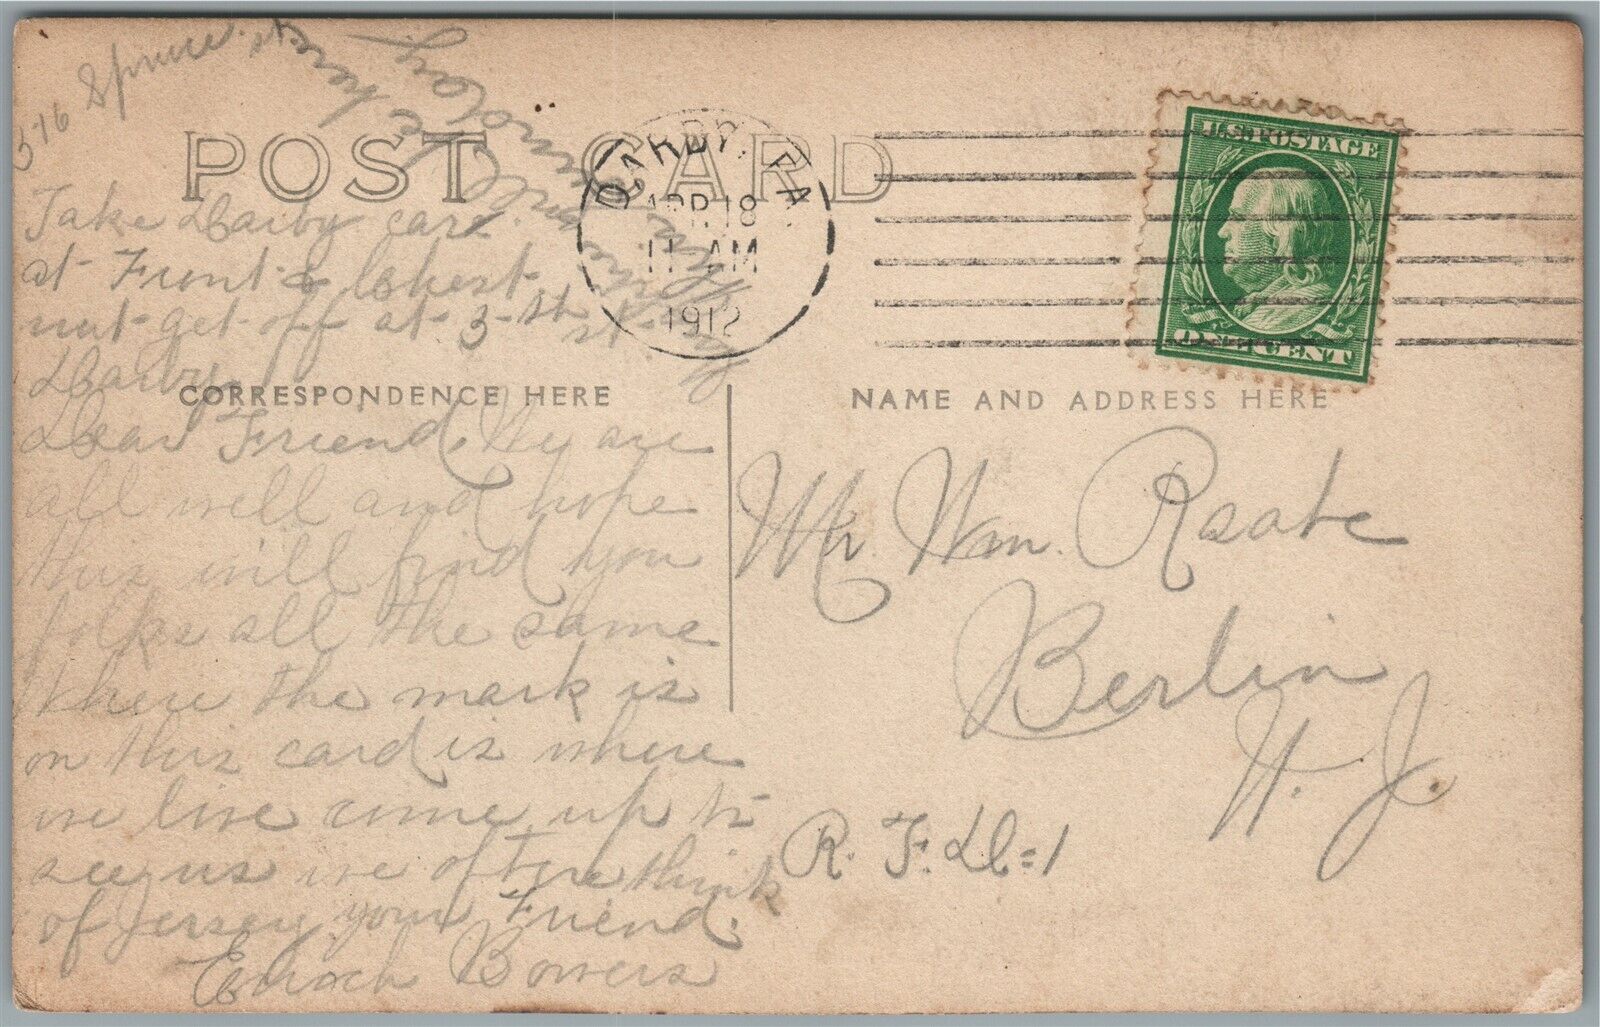 316 Spruce st
POST CARD
Take Darby car
at Front & Chest
nut get off at 3 st
Darby
CORRESPONDENCE HERE
Dear Friend, We are
all well and hope
this will find you
folks all the same
Where the mark is
on this card is where
we live come up to
see us we often think
of Jersey your Friend.
Enoch Bowers
DARBY, PA
APR 18
11 AM
1912
U.S. POSTAGE
ONE CENT
NAME AND ADDRESS HERE
Mr. Wm. Raabe
Berlin
N. J.
R. F. D=1